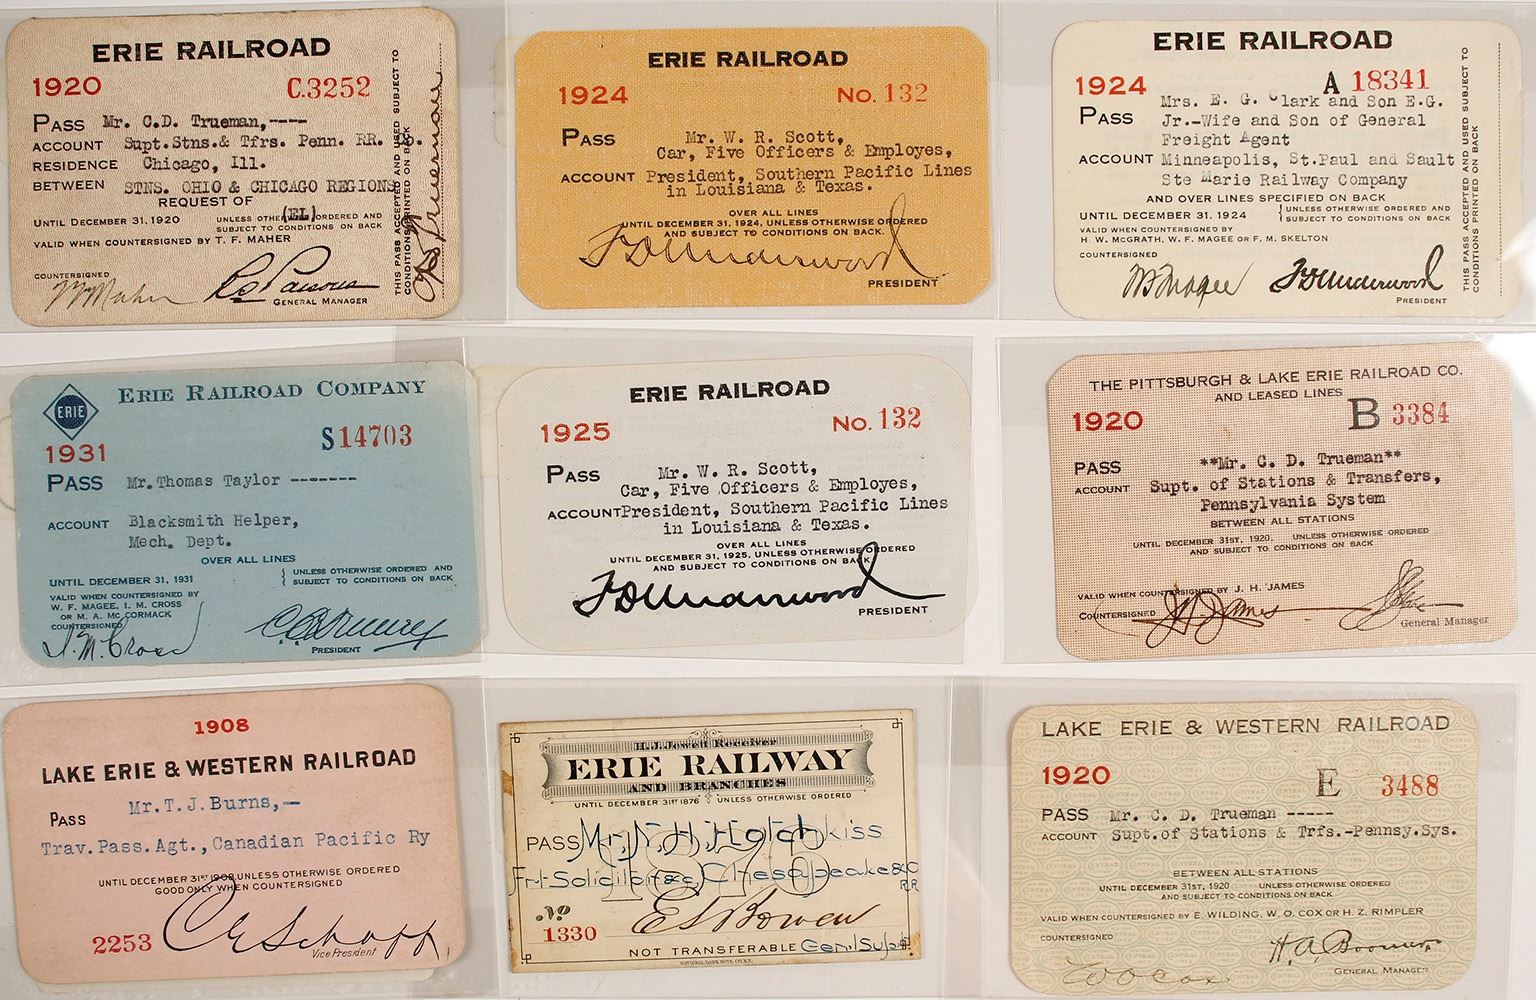 ERIE RAILROAD
1920 C.3252
PASS Mr. C.D. Trueman,----
ACCOUNT Supt.Stns.& Tfrs. Penn. RR. Co.
RESIDENCE Chicago, Ill.
BETWEEN STNS. OHIO & CHICAGO REGIONS
REQUEST OF
(EL)
UNTIL DECEMBER 31, 1920 UNLESS OTHERWISE ORDERED AND
SUBJECT TO CONDITIONS ON BACK
VALID WHEN COUNTERSIGNED BY T. F. MAHER
COUNTERSIGNED
GENERAL MANAGER
THIS PASS ACCEPTED AND USED SUBJECT TO
CONDITIONS PRINTED ON BACK
ERIE RAILROAD
1924 No. 132
PASS Mr. W. R. Scott,
Car, Five Officers & Employes,
ACCOUNT President, Southern Pacific Lines
in Louisiana & Texas.
OVER ALL LINES
UNTIL DECEMBER 31, 1924, UNLESS OTHERWISE ORDERED
AND SUBJECT TO CONDITIONS ON BACK.
F D Underwood
PRESIDENT
ERIE RAILROAD
1924 A 18341
PASS Mrs. E. G. Clark and Son E.G.
Jr.-Wife and Son of General
Freight Agent
ACCOUNT Minneapolis, St.Paul and Sault
Ste Marie Railway Company
AND OVER LINES SPECIFIED ON BACK
UNTIL DECEMBER 31, 1924 UNLESS OTHERWISE ORDERED AND
SUBJECT TO CONDITIONS ON BACK
VALID WHEN COUNTERSIGNED BY
H. W. McGRATH, W. F. MAGEE OR F. M. SKELTON
COUNTERSIGNED
W F Magee F D Underwood
PRESIDENT
THIS PASS ACCEPTED AND USED SUBJECT TO
CONDITIONS PRINTED ON BACK
ERIE
ERIE RAILROAD COMPANY
1931 S14703
PASS Mr. Thomas Taylor -------
ACCOUNT Blacksmith Helper,
Mech. Dept.
OVER ALL LINES
UNTIL DECEMBER 31, 1931 UNLESS OTHERWISE ORDERED AND
SUBJECT TO CONDITIONS ON BACK
VALID WHEN COUNTERSIGNED BY
W. F. MAGEE, I. M. CROSS
OR M. A. McCORMACK
COUNTERSIGNED
I. M. Cross
PRESIDENT
ERIE RAILROAD
1925 No. 132
PASS Mr. W. R. Scott,
Car, Five Officers & Employes,
ACCOUNT President, Southern Pacific Lines
in Louisiana & Texas.
OVER ALL LINES
UNTIL DECEMBER 31, 1925, UNLESS OTHERWISE ORDERED
AND SUBJECT TO CONDITIONS ON BACK
F D Underwood
PRESIDENT
THE PITTSBURGH & LAKE ERIE RAILROAD CO.
AND LEASED LINES
1920 B 3384
PASS **Mr. C. D. Trueman**
ACCOUNT Supt. of Stations & Transfers,
Pennsylvania System
BETWEEN ALL STATIONS
UNTIL DECEMBER 31ST, 1920, UNLESS OTHERWISE ORDERED
AND SUBJECT TO CONDITIONS ON BACK
VALID WHEN COUNTERSIGNED BY J. H. JAMES
COUNTERSIGNED J H James
General Manager
1908
LAKE ERIE & WESTERN RAILROAD
PASS Mr. T. J. Burns,—
Trav. Pass. Agt., Canadian Pacific Ry
UNTIL DECEMBER 31ST 1908 UNLESS OTHERWISE ORDERED
GOOD ONLY WHEN COUNTERSIGNED
2253 C E Schaff
Vice President
H. J. Jewett Receiver
ERIE RAILWAY
AND BRANCHES
UNTIL DECEMBER 31ST 1876 UNLESS OTHERWISE ORDERED
1876
PASS Mr, N, H, Hotchkiss
Frt-Solicitor &c, Chesapeake & O
RR
No 1330
E S Bowen
NOT TRANSFERABLE Gen'l Supt
NATIONAL BANK NOTE CO. N.Y.
LAKE ERIE & WESTERN RAILROAD
1920 E 3488
PASS Mr. C. D. Trueman -----
ACCOUNT Supt.of Stations & Trfs.-Pennsy.Sys.
BETWEEN ALL STATIONS
UNTIL DECEMBER 31ST, 1920 UNLESS OTHERWISE ORDERED
AND SUBJECT TO CONDITIONS ON BACK
VALID WHEN COUNTERSIGNED BY E. WILDING, W. O. COX OR H. Z. RIMPLER
COUNTERSIGNED
W O Cox H. A. Boomer
GENERAL MANAGER